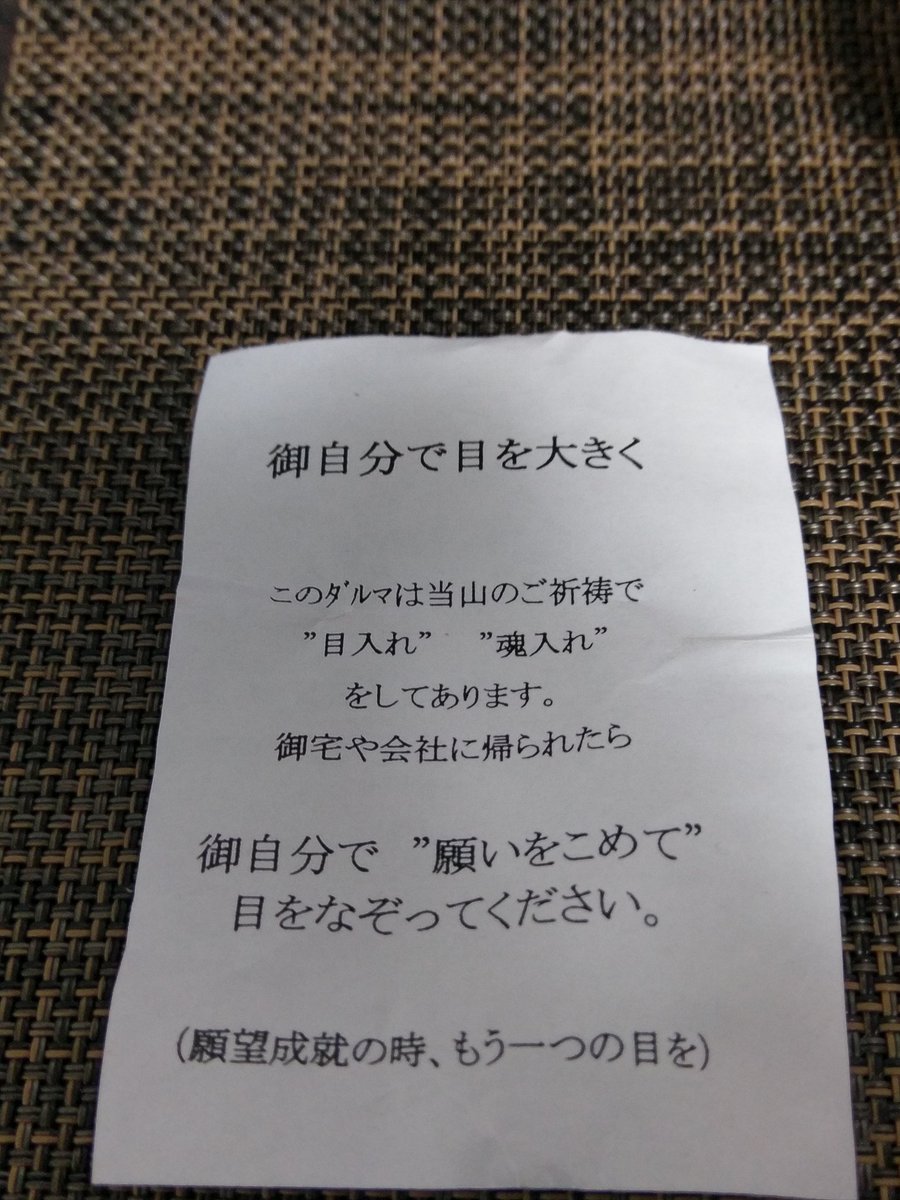 御自分で目を大きく
このダルマは当山のご祈祷で
”目入れ”　”魂入れ”
をしてあります。
御宅や会社に帰られたら
御自分で　”願いをこめて”
目をなぞってください。
(願望成就の時、もう一つの目を)